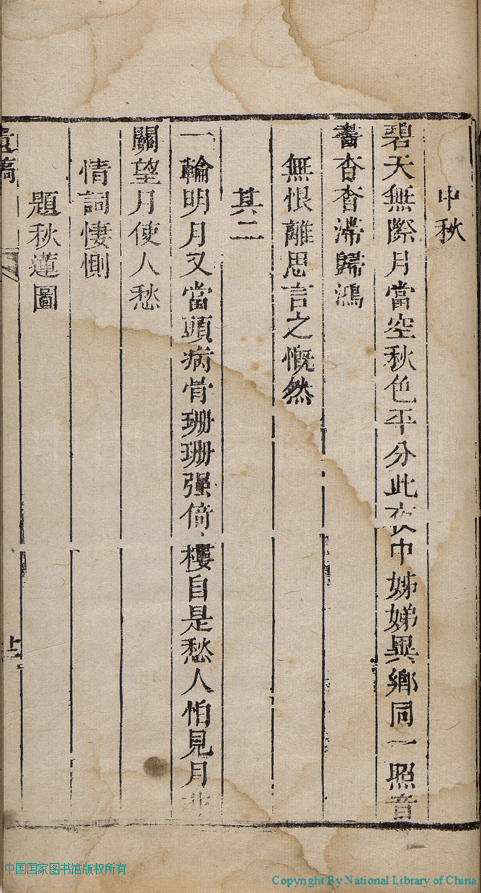 中秋
碧天無際月當空秋色平分此夜中姊娣異鄉同一照音
書杳杳滯歸鴻
無恨離思言之慨然
其二
一輪明月又當頭病骨珊珊强倚樓自是愁人怕見月非
關望月使人愁
情詞悽惻
題秋蓮圖
遺稿
中国国家图书馆版权所有
Copyright By National Library of China